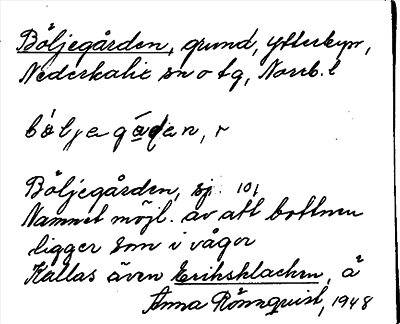 Böljegården, grund, Ytterbyn,
Nederkalix sn o tg, Norrb. l
bö̀ljegá̄ḍen, r
Böljegården, sj. 101
Namnet möjl. av att bottnen
ligger som i vågor
Kallas även Eriksklacken, å
Anna Rönnquist, 1948